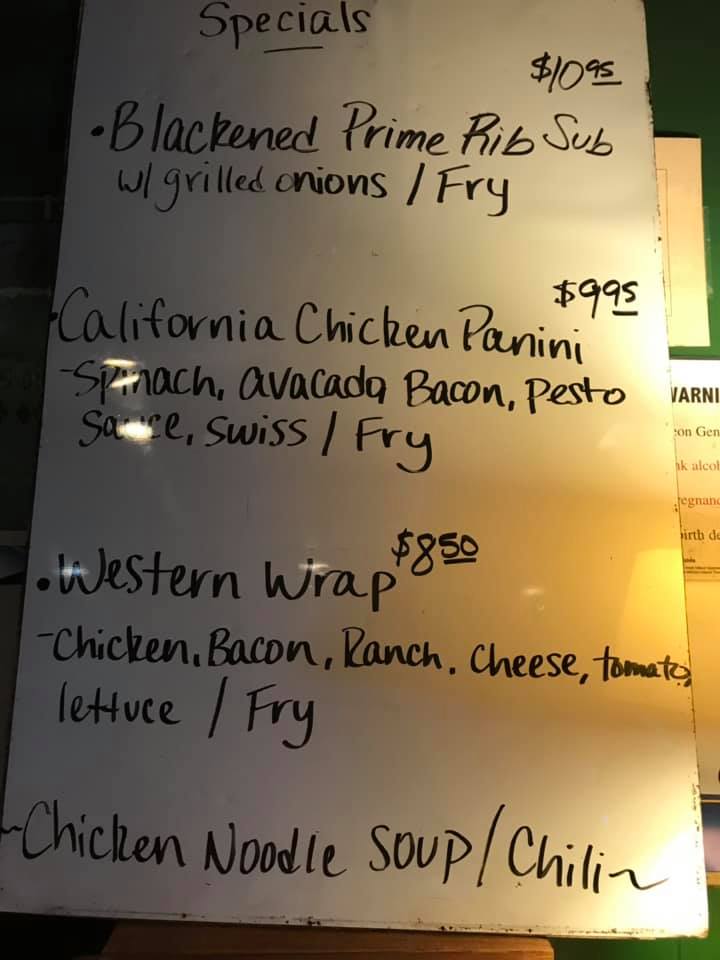 Specials
$10.95
•Blackened Prime Rib Sub
w/ grilled onions / Fry
$9.95
•California Chicken Panini
-Spinach, avacado Bacon, Pesto
Sauce, swiss / Fry
$8.50
•Western Wrap
-Chicken, Bacon, Ranch, Cheese, tomato,
lettuce / Fry
~Chicken Noodle SOUP / Chili~
VARNI
eon Gen
nk alcoh
regnanc
birth de